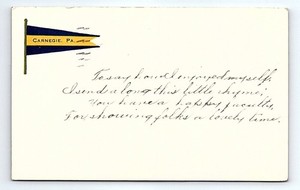 CARNEGIE, PA.
To say how I enjoyed myself,
I send along this little rhyme;
You have a happy faculty,
For showing folks a lovely time.